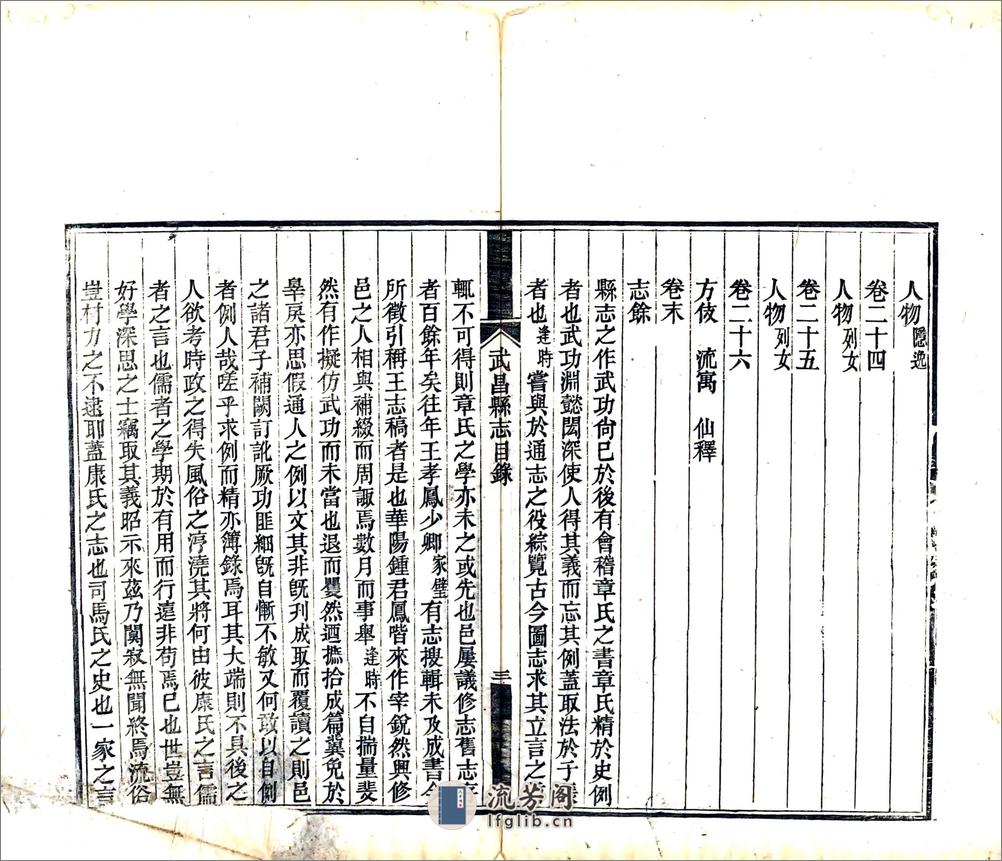 人物隱逸
卷二十四
人物列女
卷二十五
人物列女
卷二十六
方伎　流寓　仙釋
卷末
志餘
縣志之作武功尙已於後有會稽章氏之書章氏精於史例
者也武功淵懿閎深使人得其義而忘其例蓋取法於子長
者也逢時嘗與於通志之役綜覽古今圖志求其立言之
武昌縣志目錄
三
輒不可得則章氏之學亦未之或先也邑屢議修志舊志
者百餘年矣往年王孝鳳少卿家璧有志搜輯未及成書今
所徵引稱王志稿者是也華陽鍾君鳳喈來作宰銳然興修
邑之人相與補綴而周諏焉數月而事舉逢時不自揣量斐
然有作擬仿武功而未當也退而矍然迺摭拾成篇冀免於
辠戾亦思假通人之例以文其非旣刋成取而覆讀之則邑
之諸君子補闕訂訛厥功匪細旣自慚不敏又何敢以自例
者例人哉嗟乎求例而精亦簿錄焉耳其大端則不具後之
人欲考時政之得失風俗之渟澆其將何由彼康氏之言儒
者之言也儒者之學期於有用而行遠非苟焉已也世豈無
好學深思之士竊取其義昭示來茲乃闃寂無聞終焉流俗
豈材力之不逮耶蓋康氏之志也司馬氏之史也一家之言
流芳阁
lfglib.cn